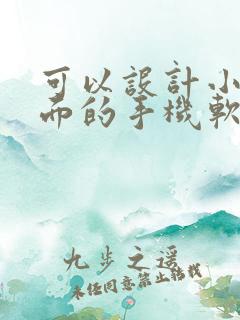 可以設計小
面的手機軟
九步之遥
未经同意禁止转载